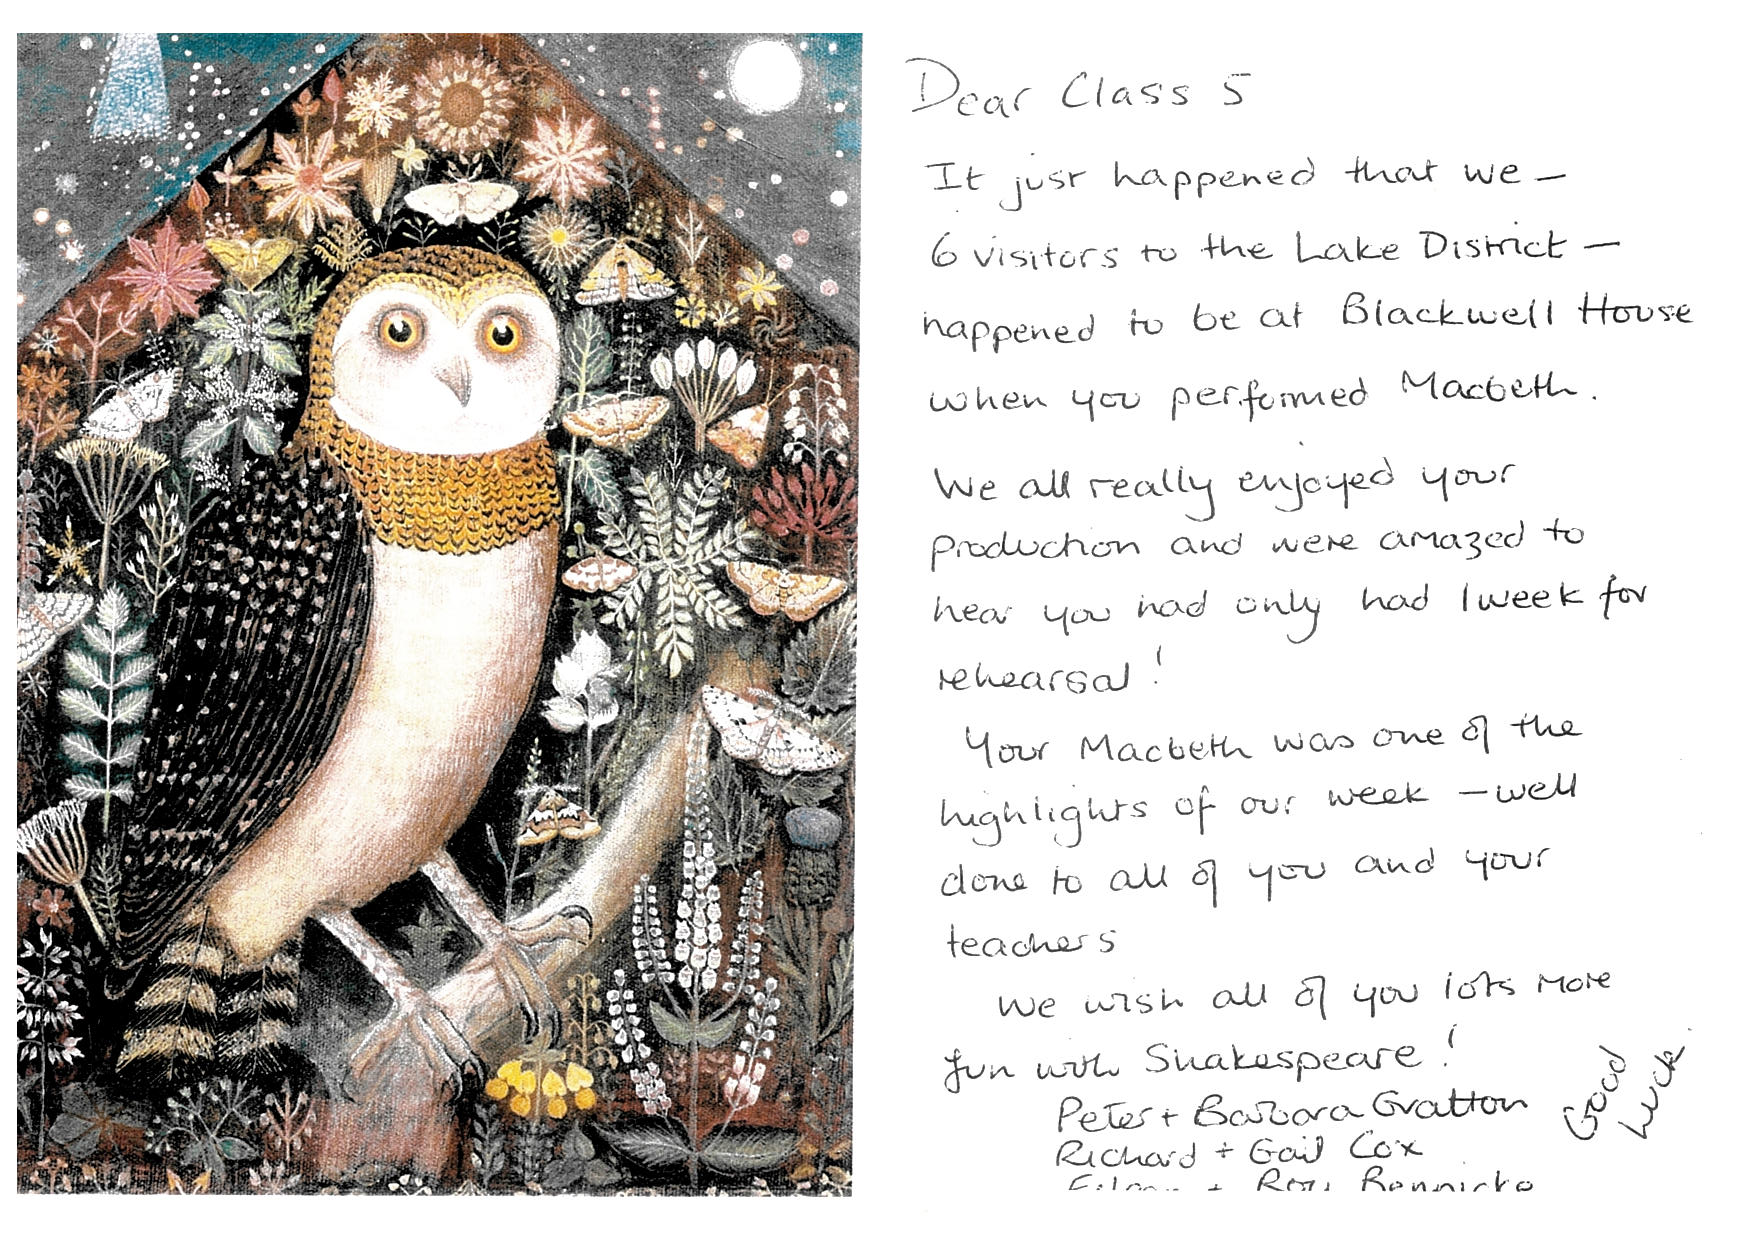 Dear Class 5
It just happened that we –
6 visitors to the Lake District –
happened to be at Blackwell House
when you performed Macbeth.
We all really enjoyed your
production and were amazed to
hear you had only had 1 week for
rehearsal!
Your Macbeth was one of the
highlights of our week – well
done to all of you and your
teachers
We wish all of you lots more
fun with Shakespeare!
Peter + Barbara Gratton
Richard + Gail Cox
+
Good
luck.